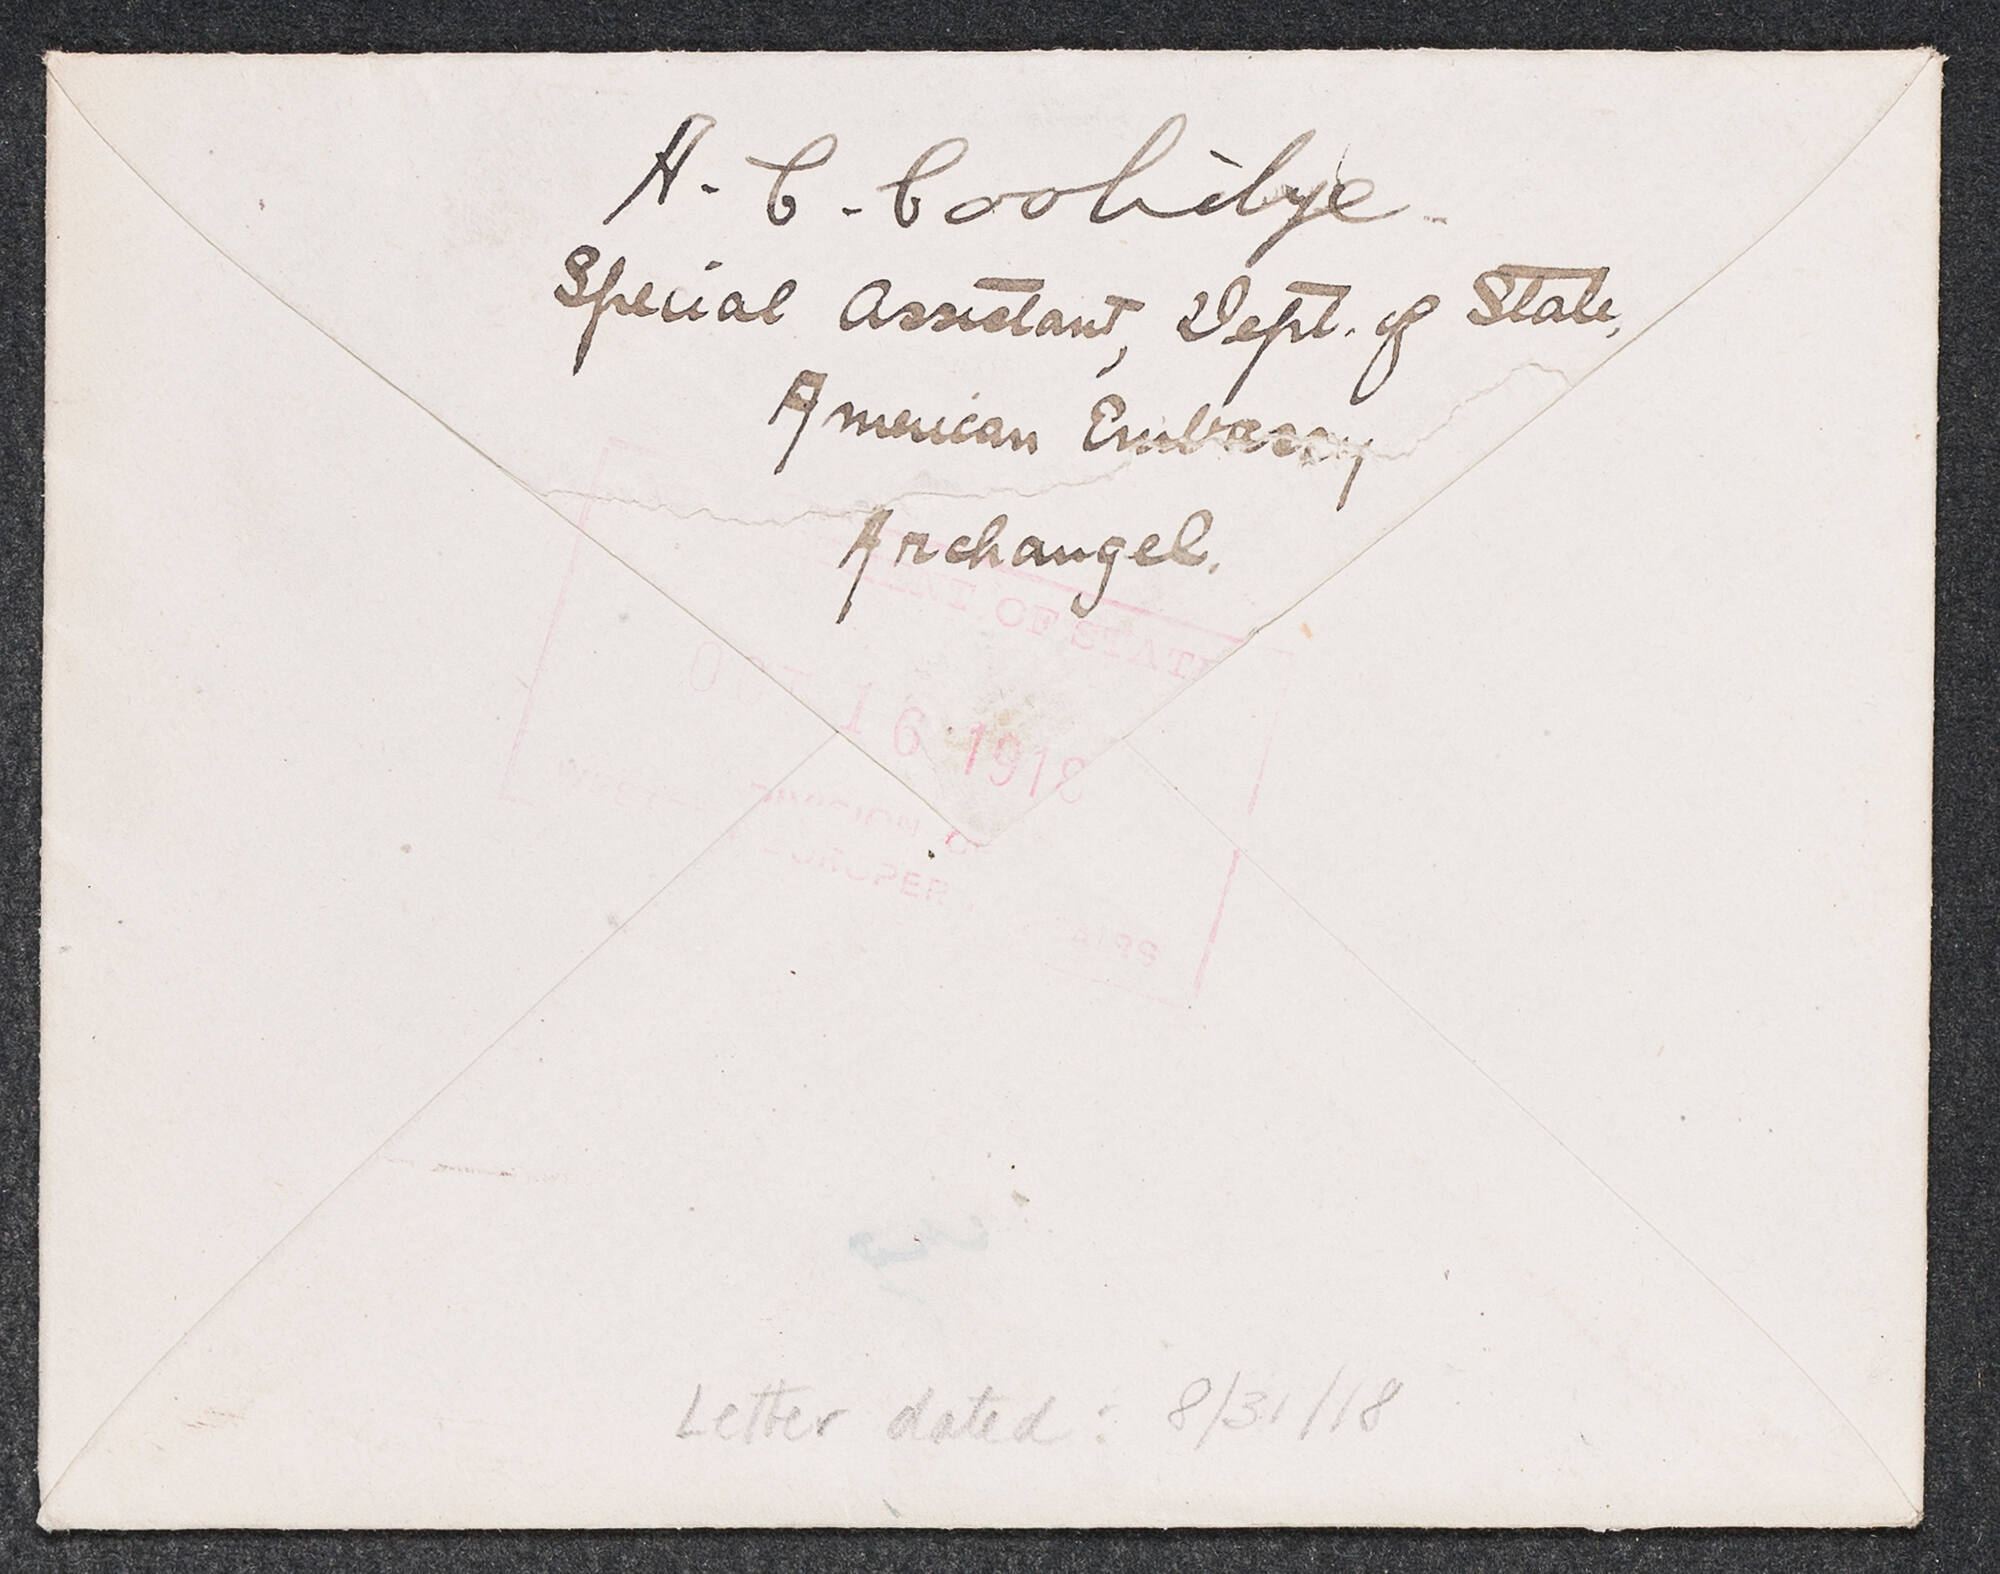 A. C. Coolidge
Special Assistant, Dept. of State,
American Embassy
Archangel.
OF STATE
OCT 16 1918
DIVISION OF
Letter dated: 8/31/18